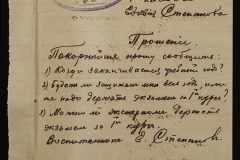 Степанова
Прошение
Покорнейше прошу сообщить:
1) Когда заканчивается учебный год?
2) Будет ли защитан мне весь год, или
же надо держать экзамены за I курс?
3) Можно ли экстерном держать
экзамен за I курс
Воспитанник Е Степанов